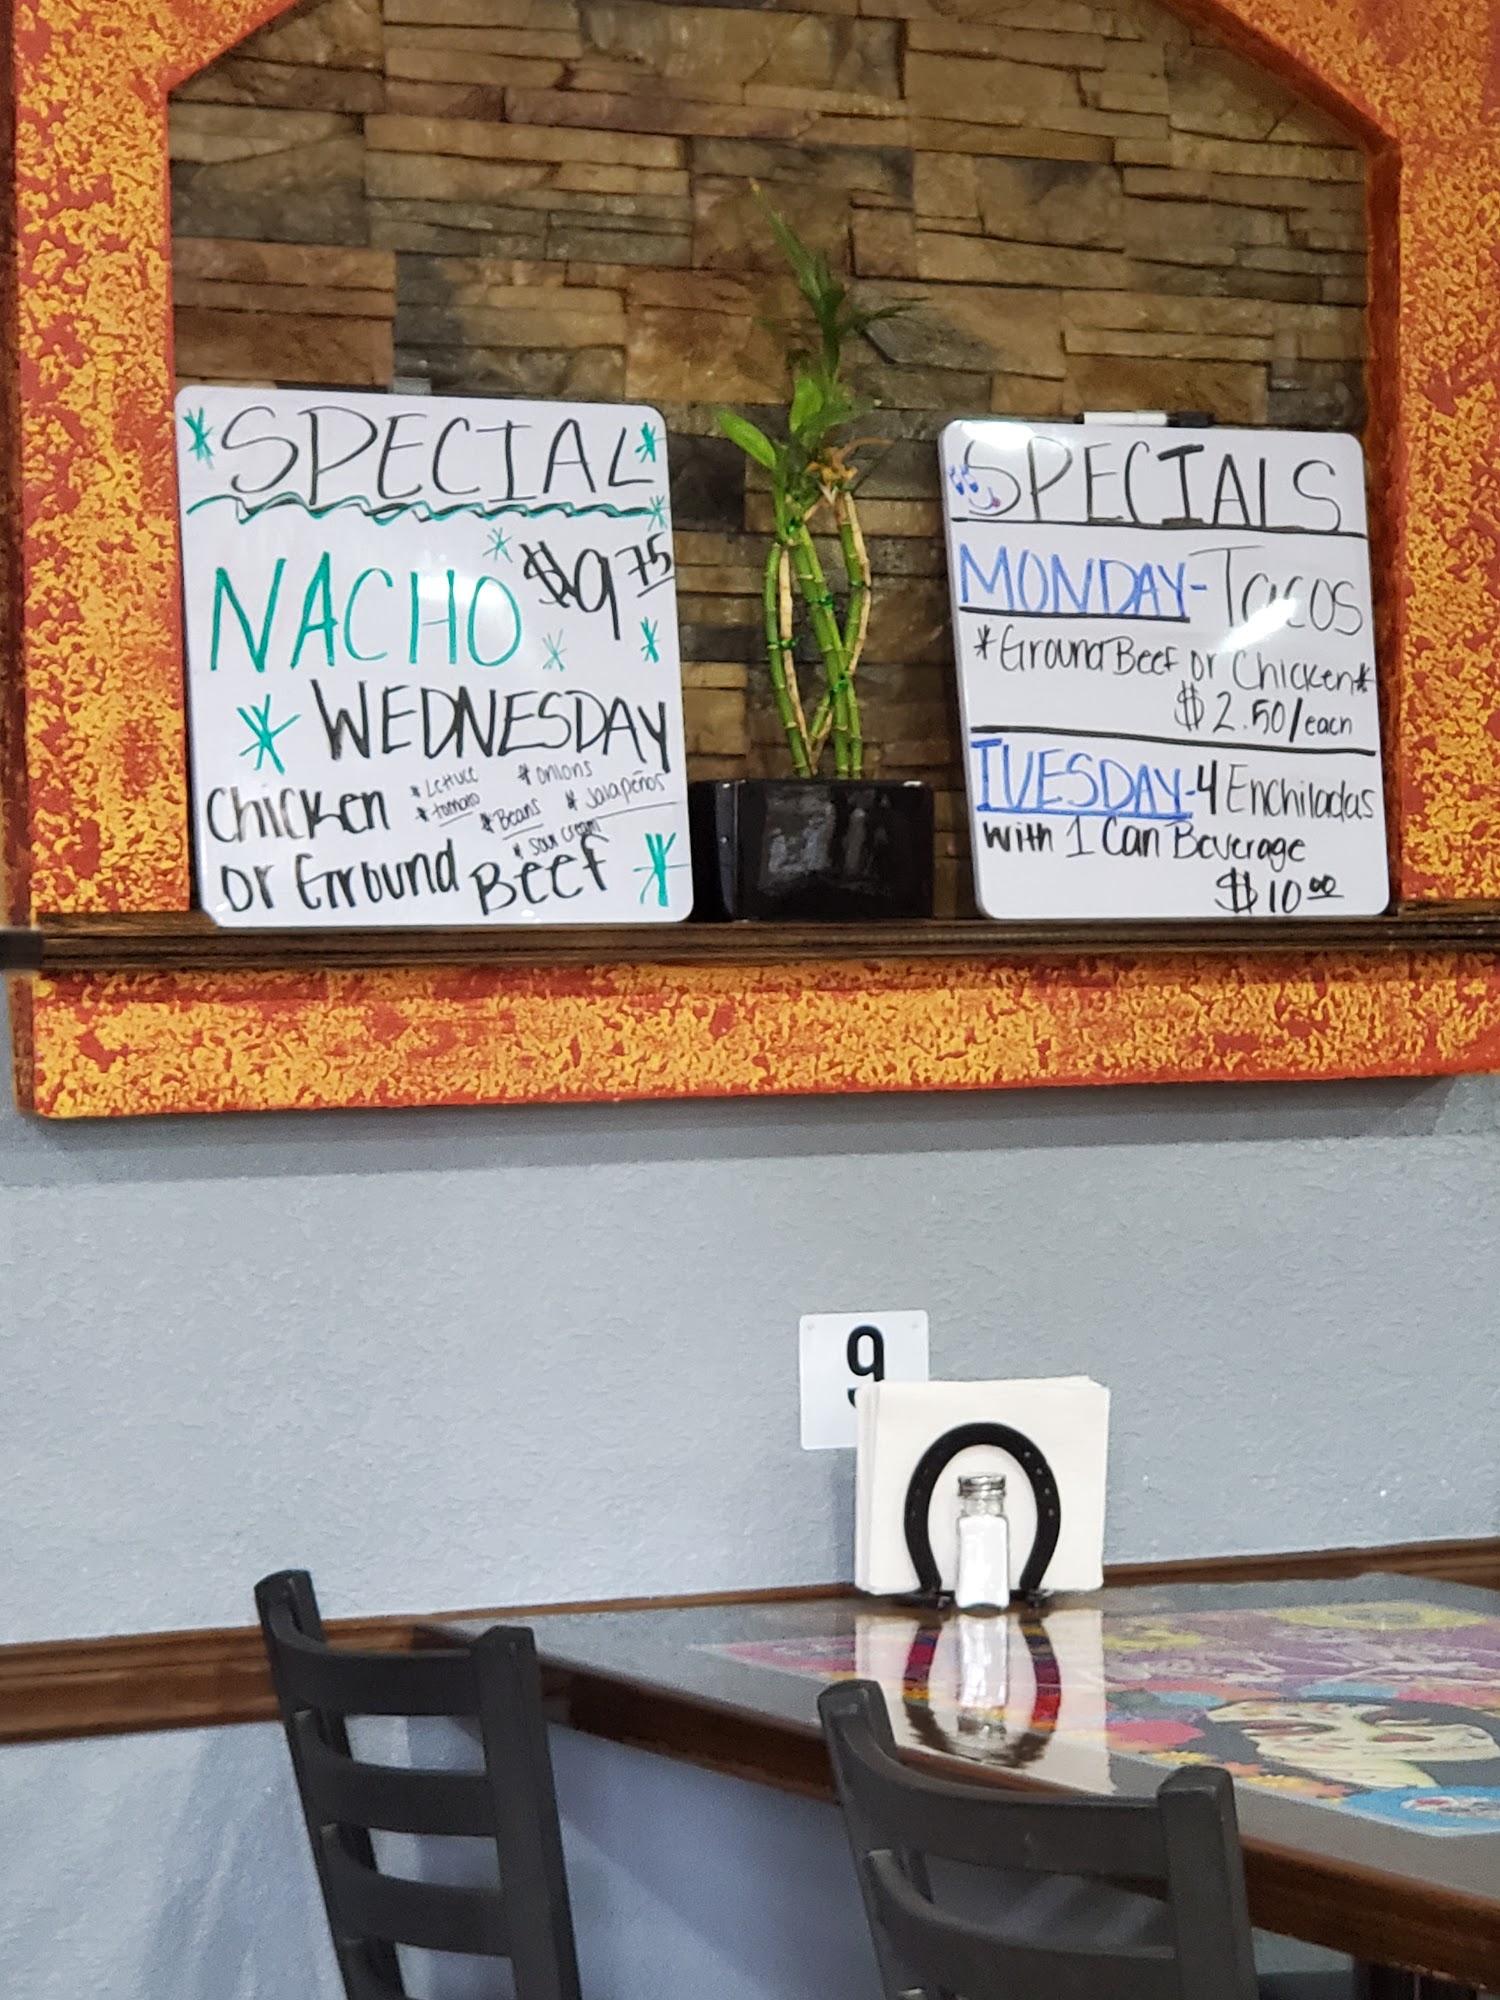 SPECIAL
NACHO $9.75
* WEDNESDAY
Chicken
* Lettuce
* onions
* tomato
* Beans
* Jalapeños
* sour cream
or Ground Beef *
SPECIALS
MONDAY - Tacos
*Ground Beef or Chicken*
$2.50/each
TUESDAY - 4 Enchiladas
with 1 Can Beverage
$10.00
9